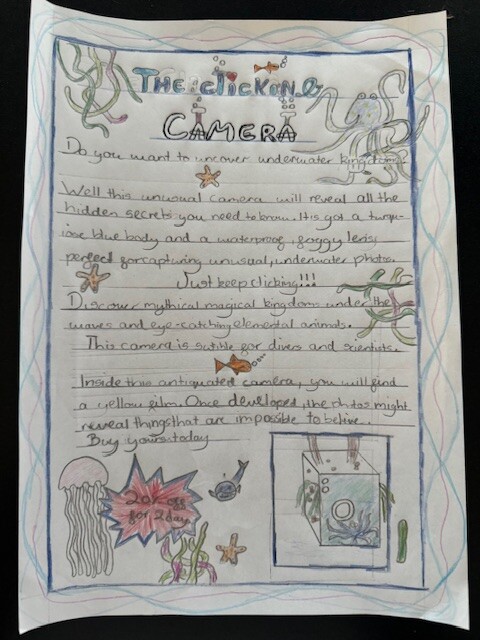 THE CLICKON 2
CAMERA
Do you want to uncover underwater kingdoms?
Well this unusual camera will reveal all the
hidden secrets you need to know. It is got a turqu-
iose blue body and a waterproof, foggy lens,
perfect for capturing unusual, underwater photos.
Just keep clicking!!!
Discover mythical magical kingdoms under the
waves and eye-catching elemental animals.
This camera is sutible for divers and scientists.
Inside this antiquated camera, you will find
a yellow film. Once developed, the photos might
reveal things that are impossible to belive.
Buy yours today
20% off
for 2 day